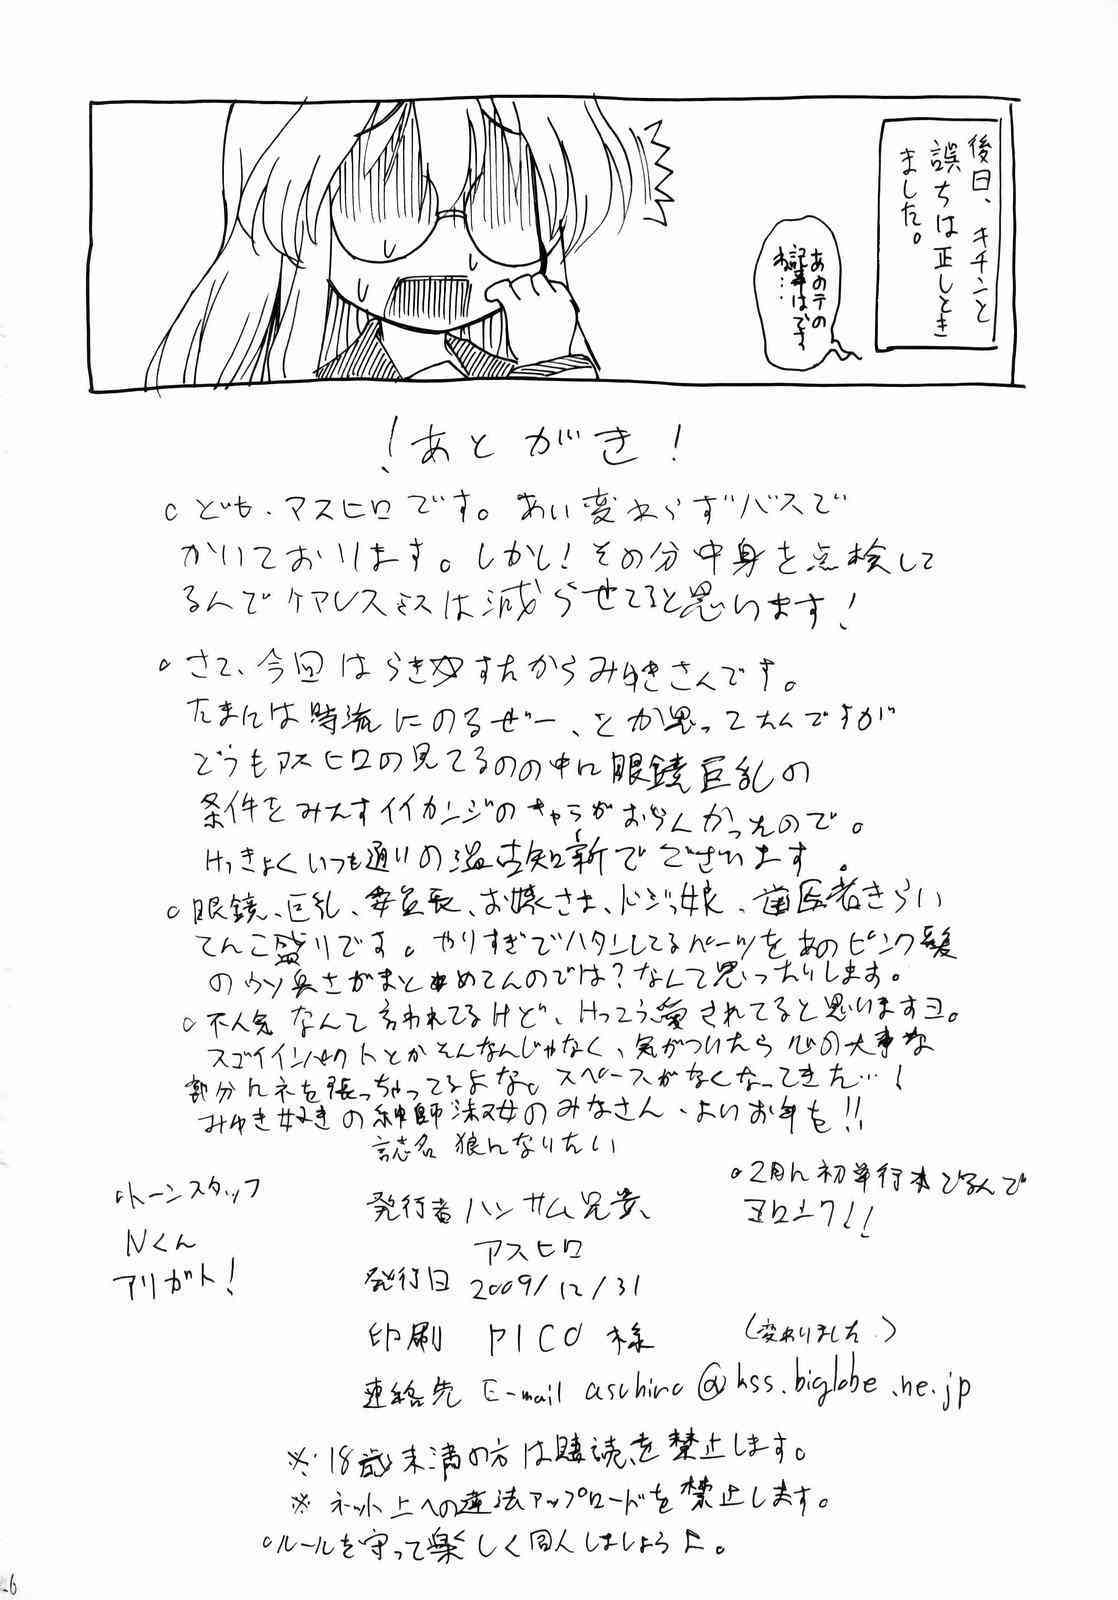 後日、キチンと
誤ちは正しとき
ました。
あのテの
記事はです
ね…
！あとがき！
○ども、アスヒロです。あい変わらずバスで
かいております。しかし！その分中身を点検して
るんでケアレスミスは減らせてると思います！
○さて、今回はらき☆すたからみゆきさんです。
たまには時流にのるぜー、とか思ってたんですが
どうもアスヒロの見てるのの中に眼鏡巨乳の
条件をみたすイイカンジのキャラがおらんかったので。
けっきょくいつも通りの温古知新でございます。
○眼鏡、巨乳、委員長、お嬢さま、ドジっ娘、歯医者きらい
てんこ盛りです。やりすぎでハタンしてるパーツをあのピンク髪
のウソ臭さがまとめてんのでは？なんて思ったりします。
○不人気なんて言われてるけど、けっこう愛されてると思いますヨ。
スゴイインパクトとかそんなんじゃなく、気がついたら心の大事な
部分にネを張っちゃってるよな。スペースがなくなってきた…！
みゆき好きの紳師淑女のみなさん、よいお年も！！
誌名 狼になりたい
○トーンスタッフ
Nくん
アリガト！
発行者 ハンサム兄貴、
アスヒロ
○2月に初単行本でるんで
ヨロシク！！
発行日 2009/12/31
印刷 PICO様
（変わりました。）
連絡先 E-mail aschiro@kss.biglobe.ne.jp
※18歳未満の方は購読を禁止します。
※ネット上への違法アップロードを禁止します。
○ルールを守って楽しく同人しましょうよ。